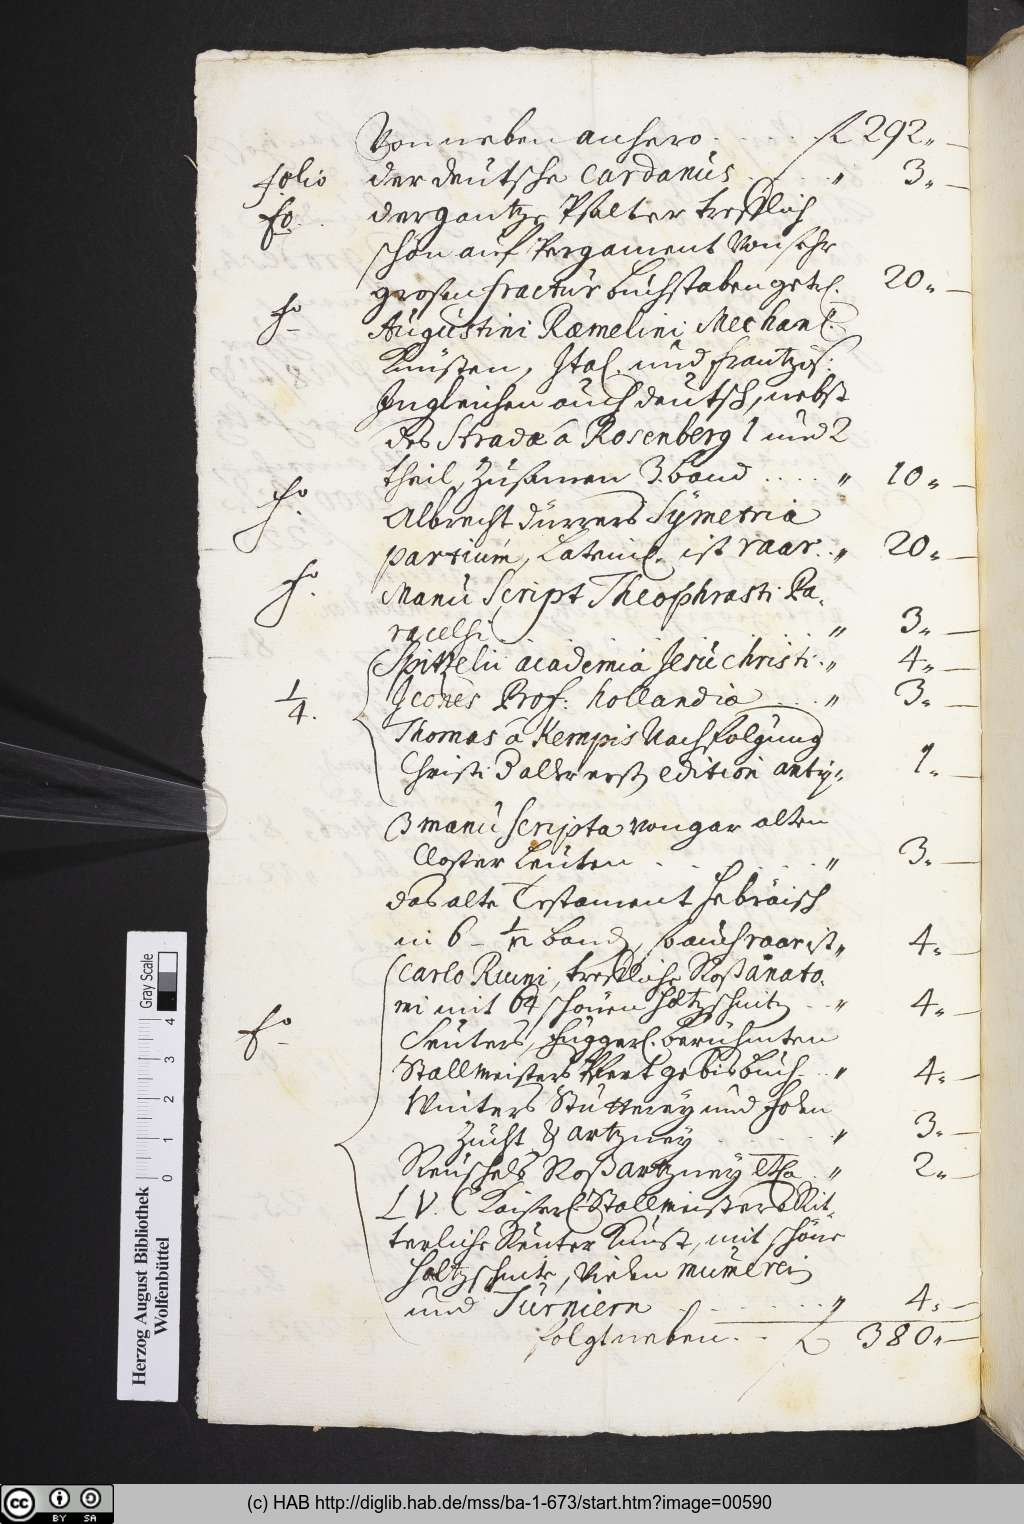 Von neben anhero . . . . . fl 292„ —
folio der deutsche Cardanus . . . „ 3„ —
fo. der gantze Psalter trefflich
schön auf Pergament von sehr
großen fractur buchstaben getr. 20„ —
fo Augustini Ræmelini Mechanl.
Künsten, Ital. und frantzös:
Ingleichen auch deutsch, nebst
des Strada â Rosenberg 1 und 2
theil, Zusamen 3. band . . . . „ 10„ —
fo. Albrecht Dürrers Sÿmetria
partium, Lateinl. ist raar. „ 20„ —
fo. Manu Script Theophrasti Pa,
racelsi „ 3„ —
Spitzelii academia Jesu Christi . „ 4„ —
1/4. Icones Prof: hollandia . . . „ 3„ —
Thomas â Kempis Nachfolgung
Christi 3 aller erst edition anty„ 1„ —
3 manu scripta von gar alten
Closter Leuten . . . . . „ 3„ —
das alte Testament hebräisch
in 6 – 1/12 band, so auch raar ist „ 4„ —
Carlo Ruini, treffliche Roßanato,
mi mit 64 schönen holtzschnitz . . „ 4„ —
fo Seuters, Fuggerl. berühmten
Stallmeisters Pfert gebisbuch . . „ 4„ —
Winters Stutterey und fohln
Zucht & artzney . . . . . „ 3„ —
Reuschels Roßartzney . „ 2„ —
L V. C Kaiserl. Stallmeisters Rit,
terliche Reuter Kunst, mit schöne
holtzschnitt, vielen mumerei
und Turniern . . . . . . . „ 4„ —
folgt neben . . fl 380„ —
Herzog August Bibliothek
Wolfenbüttel
0 1 2 3 4
Gray Scale
CC BY SA
(c) HAB http://diglib.hab.de/mss/ba-1-673/start.htm?image=00590